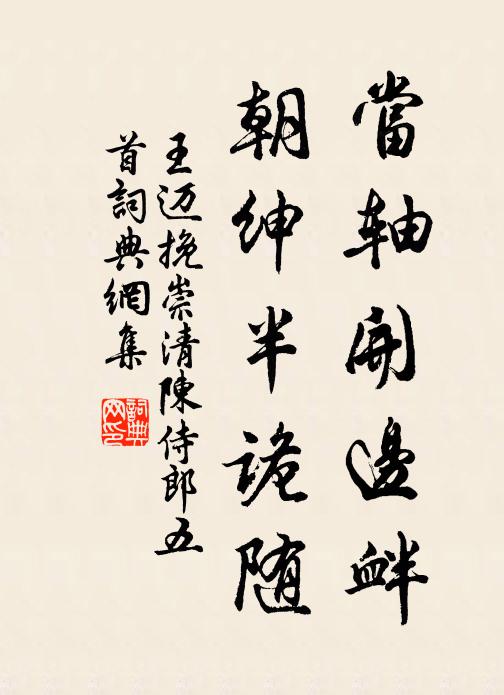 當軸開邊衅
朝紳半詭随
王迈挽崇清陳侍郎五
首詞典網集
詞典
网印